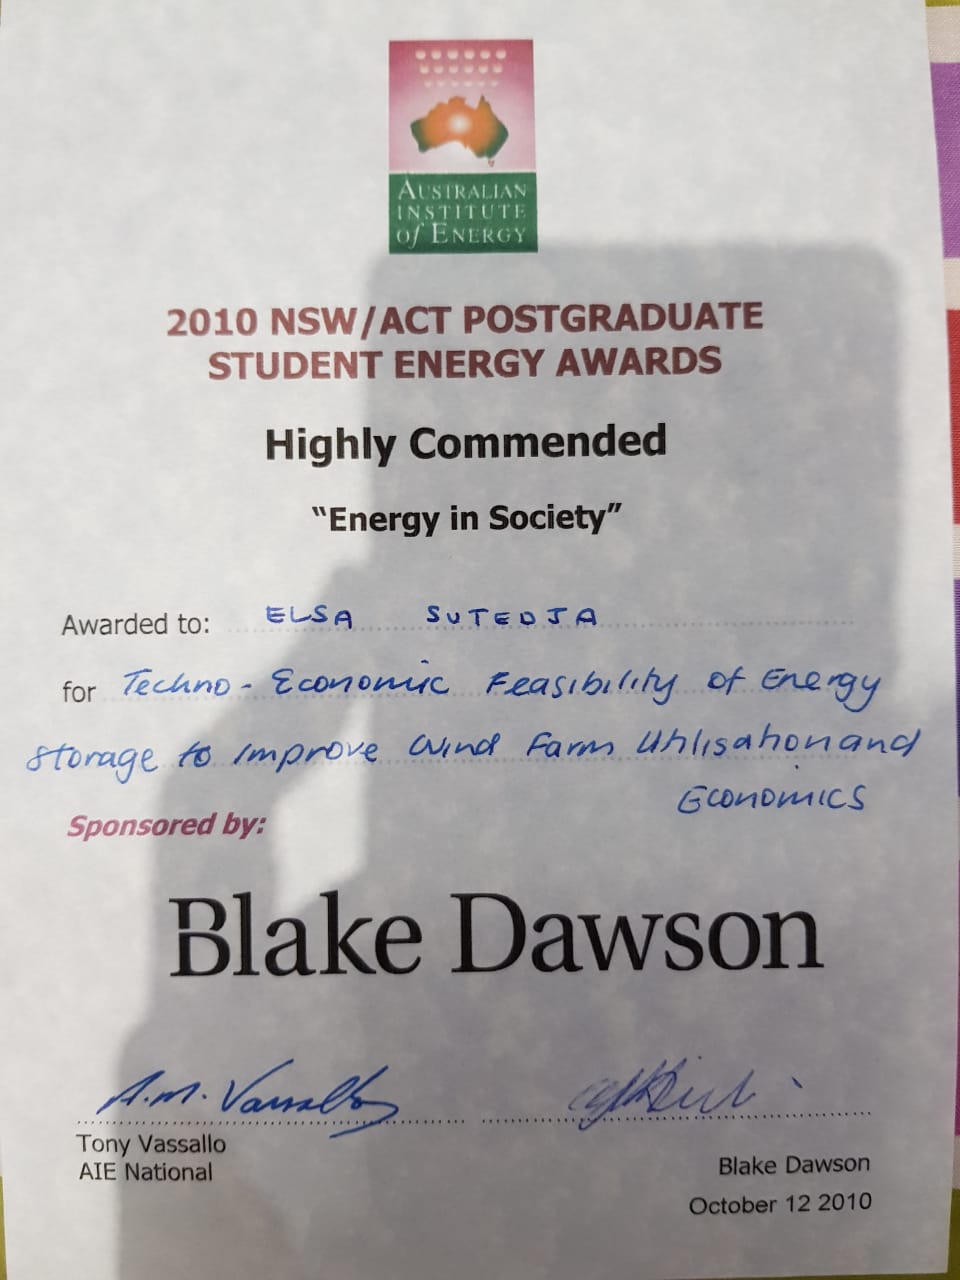 AUSTRALIAN
INSTITUTE
of ENERGY
2010 NSW/ACT POSTGRADUATE
STUDENT ENERGY AWARDS
Highly Commended
“Energy in Society”
Awarded to: ELSA SUTEDJA
for Techno-Economic Feasibility of Energy
storage to improve Wind Farm Utilisation and
Economics
Sponsored by:
Blake Dawson
A.M. Vassallo
Tony Vassallo
AIE National
Blake Dawson
October 12 2010